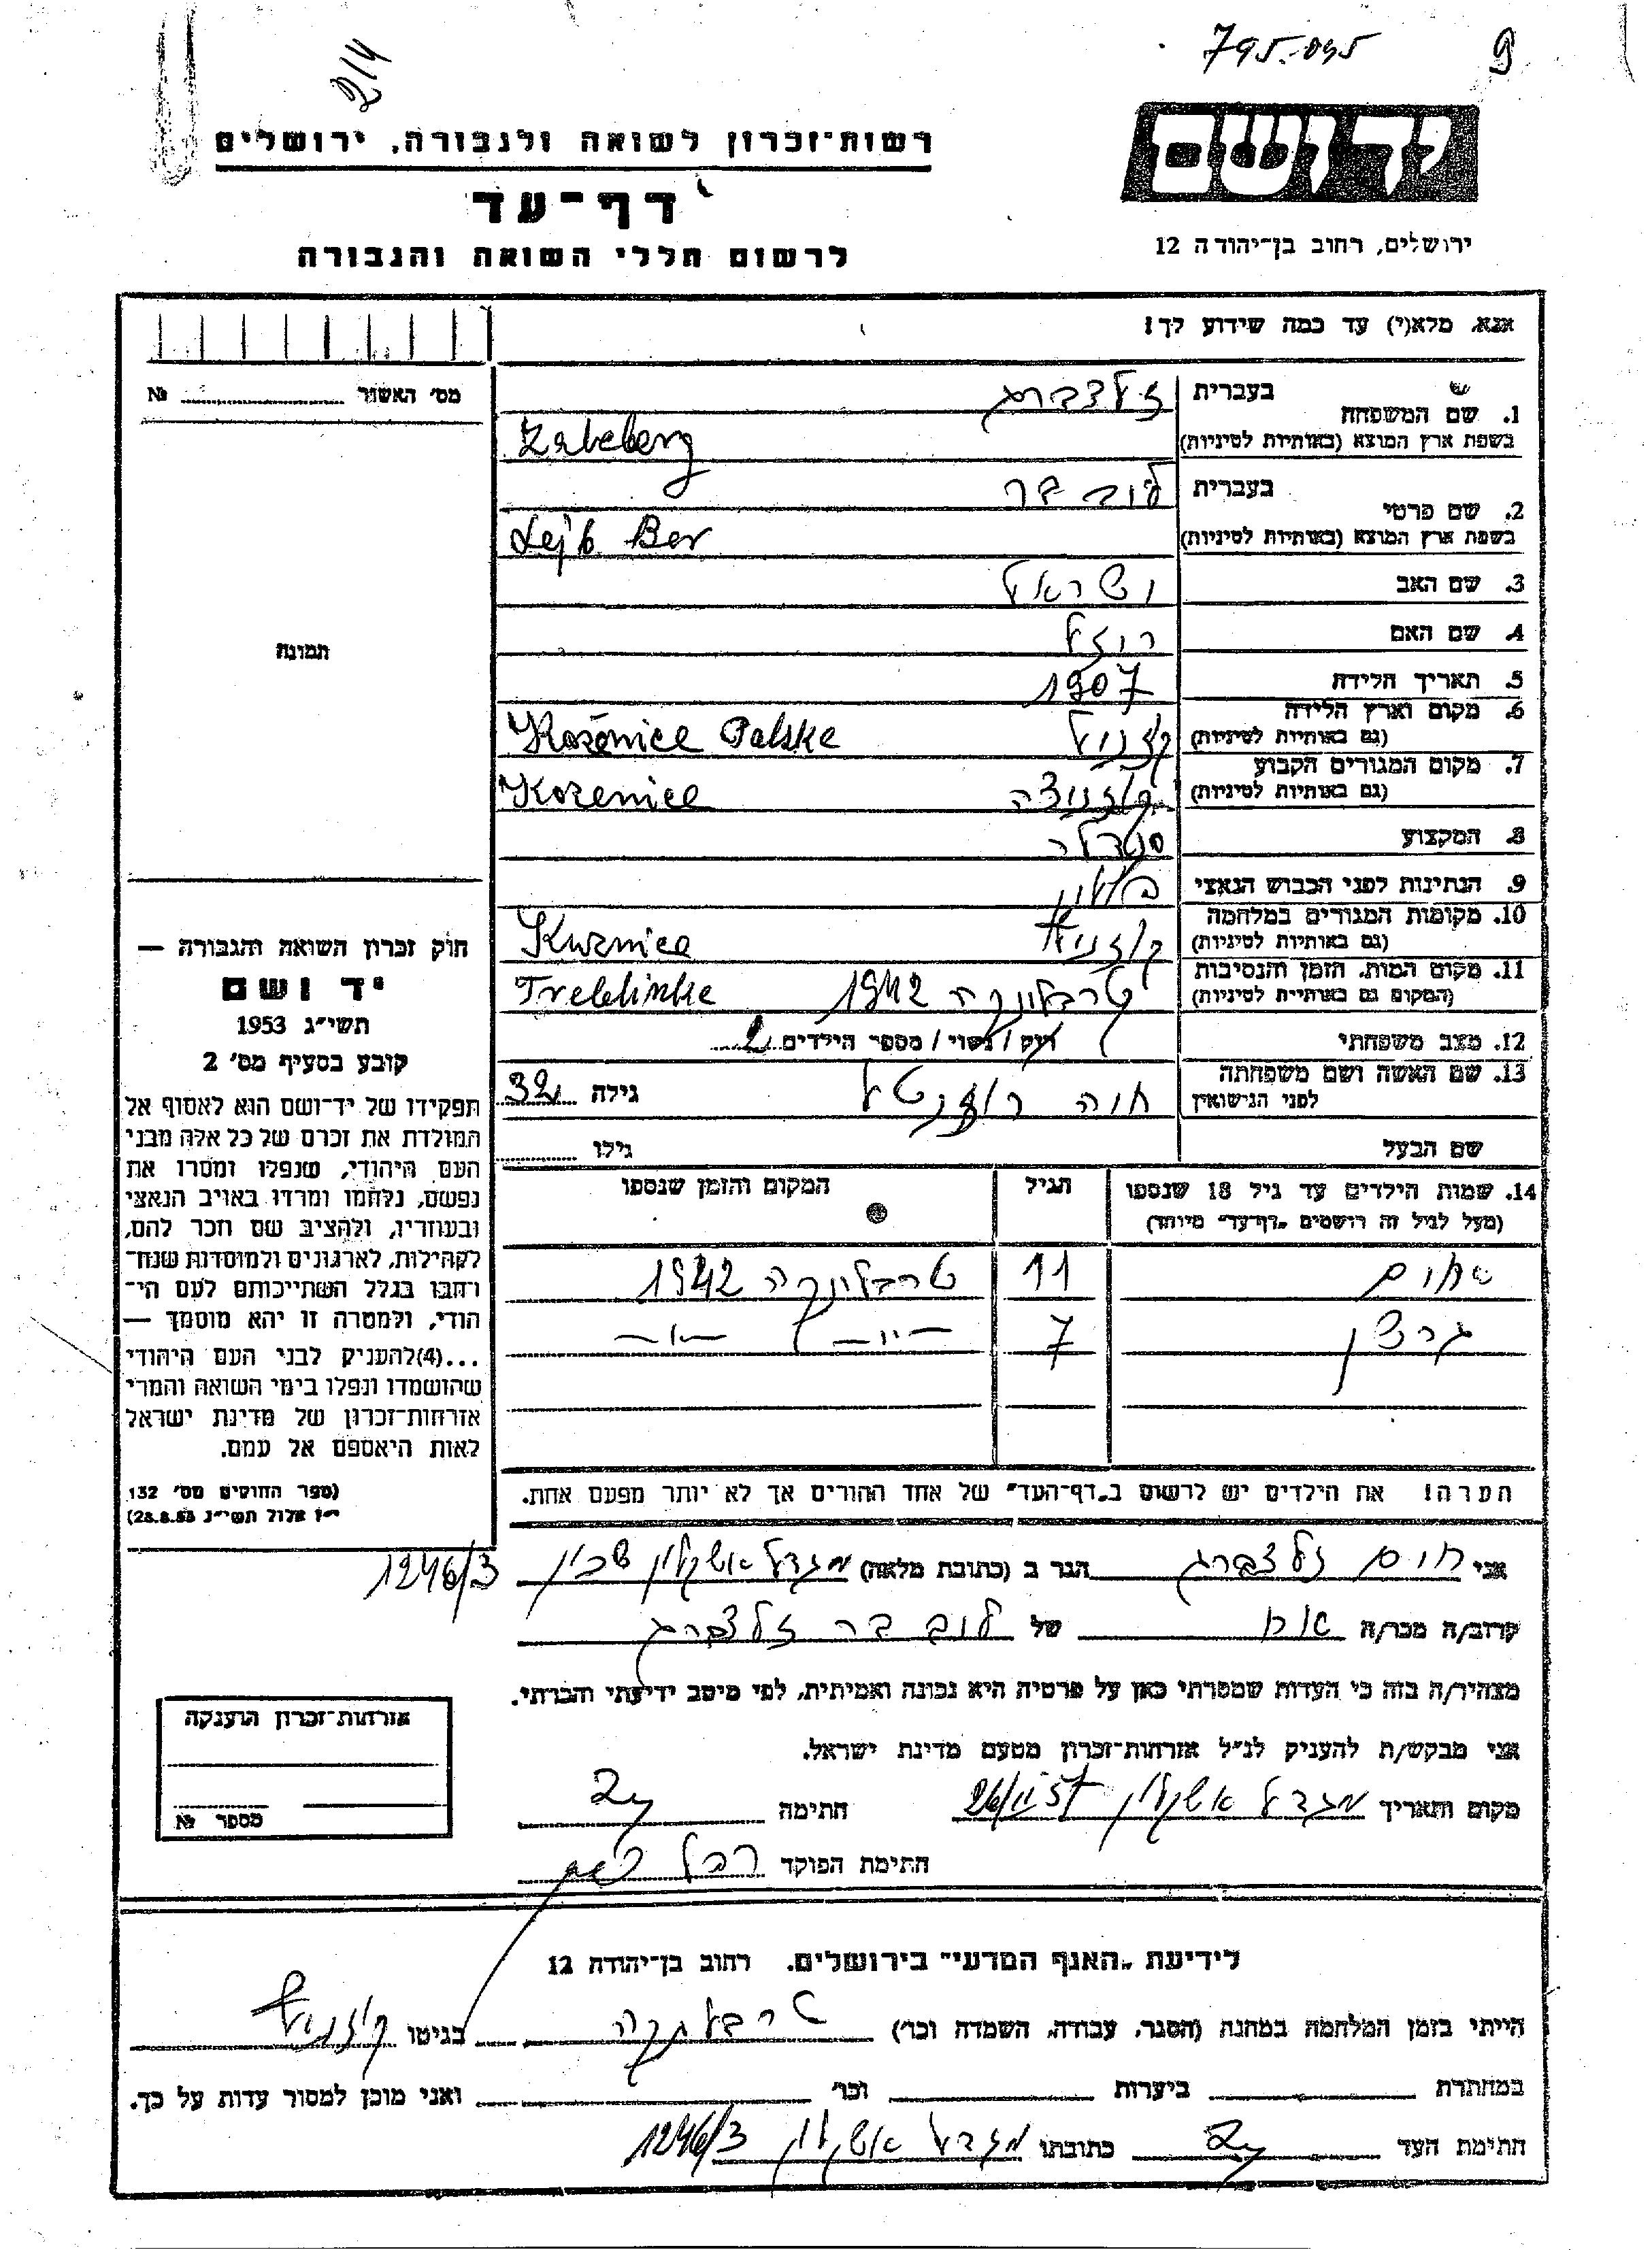 795.095
9
214
יד ושם
רשות־זכרון לשואה ולגבורה, ירושלים
דף־עד
לרשום חללי השואה והגבורה
ירושלים, רחוב בן־יהודה 12
אנא, מלא(י) עד כמה שידוע לך!
מס' האשור № 
1. שם המשפחה
בעברית זלצברג
בשפת ארץ המוצא (באותיות לטיניות)
2. שם פרטי
בעברית לוב בר
בשפת ארץ המוצא (באותיות לטיניות) Lejb Ber
3. שם האב ישראל
4. שם האם רוזל
5. תאריך הלידה 1907
6. מקום וארץ הלידה
(גם באותיות לטיניות) Polske
7. מקום המגורים הקבוע
(גם באותיות לטיניות) קוזניצה Kozenice
8. המקצוע סנדלר
9. הנתינות לפני הכבוש הנאצי פולין
10. מקומות המגורים במלחמה
(גם באותיות לטיניות)
11. מקום המות, הזמן והנסיבות
(המקום גם באותיות לטיניות) טרבלינקה 1942
12. מצב משפחתי רווק / נשוי / מספר הילדים 2
13. שם האשה ושם משפחתה
לפני הנישואין חוה גילה 32
שם הבעל גילו
14. שמות הילדים עד גיל 18 שנספו
(מעל לגיל זה רושמים "דף־עד" מיוחד)
הגיל
המקום והזמן שנספו
11 טרבלינקה 1942
7 —"— —"—
הערה! את הילדים יש לרשום ב"דף־העד" של אחד ההורים אך לא יותר מפעם אחת.
תמונה
חוק זכרון השואה והגבורה —
יד ושם
תשי"ג 1953
קובע בסעיף מס' 2
תפקידו של יד־ושם הוא לאסוף אל
המולדת את זכרם של כל אלה מבני
העם היהודי, שנפלו ומסרו את
נפשם, נלחמו ומרדו באויב הנאצי
ובעוזריו, ולהציב שם וזכר להם,
לקהילות, לארגונים ולמוסדות שנח־
רבו בגלל השתייכותם לעם הי־
הודי, ולמטרה זו יהא מוסמך —
...(4)להעניק לבני העם היהודי
שהושמדו ונפלו בימי השואה והמרי
אזרחות־זכרון של מדינת ישראל
לאות היאספם אל עמם.
(ספר החוקים מס' 132
י"ז אלול תשי"ג 28.8.53)
אני חיים זלצברג הגר ב (כתובת מלאה) מגדל אשקלון שכון 1246/3
קרוב/ה מכר/ה אח של לוב בר זלצברג
מצהיר/ה בזה כי העדות שמסרתי כאן על פרטיה היא נכונה ואמיתית, לפי מיטב ידיעתי והכרתי.
אני מבקש/ת להעניק לנ"ל אזרחות־זכרון מטעם מדינת ישראל.
מקום ותאריך מגדל אשקלון חתימה
חתימת הפוקד
אזרחות־זכרון הוענקה
מספר №
לידיעת "האגף המדעי" בירושלים, רחוב בן־יהודה 12
הייתי בזמן המלחמה במחנה (הסגר, עבודה, השמדה וכו') טרבלינקה בגיטו
במחתרת ביערות וכו' ואני מוכן למסור עדות על כך.
חתימת העד כתובתו מגדל אשקלון 1246/3